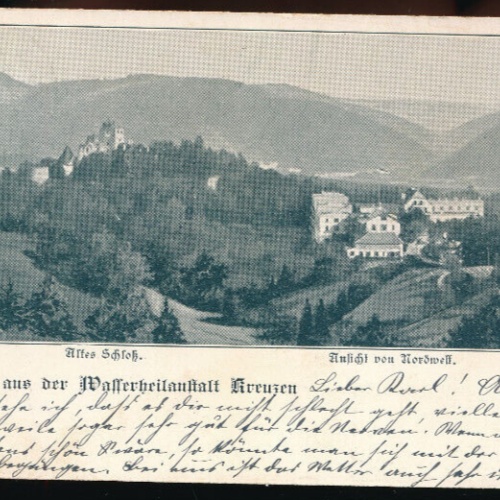 Altes Schloß.
Ansicht von Nordwest.
aus der Wasserheilanstalt Kreuzen Lieber Karl!
sehe ich, dass es dir nicht schlecht geht, vielle
weile sogar sehr gut für die Nerven. Wenn
schön wäre, so könnte man sich mit der
begnügen. Bei uns ist das Wetter auch sehr